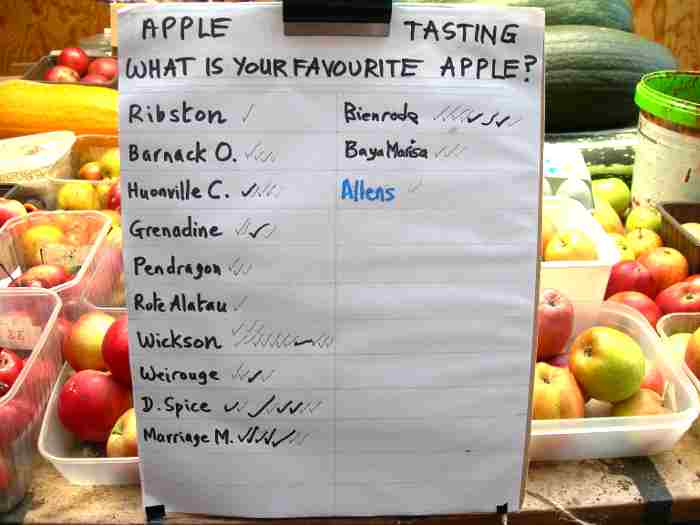 APPLE TASTING
WHAT IS YOUR FAVOURITE APPLE?
Ribston
Barnack O.
Huonville C.
Grenadine
Pendragon
Rote Alatau
Wickson
Weirouge
D. Spice
Marriage M.
Bienroda
Baya Marisa
Allens